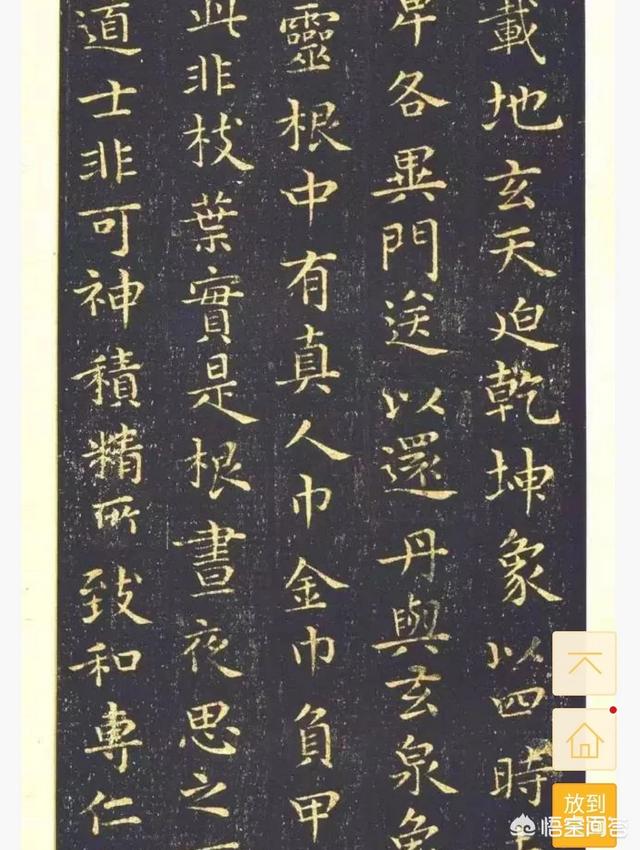 載地玄天迫乾坤象以四時
卑各異門送以還丹與玄泉象
靈根中有真人巾金巾負甲
此非枝葉實是根晝夜思之
道士非可神積精所致和專仁
放到
悟空问答